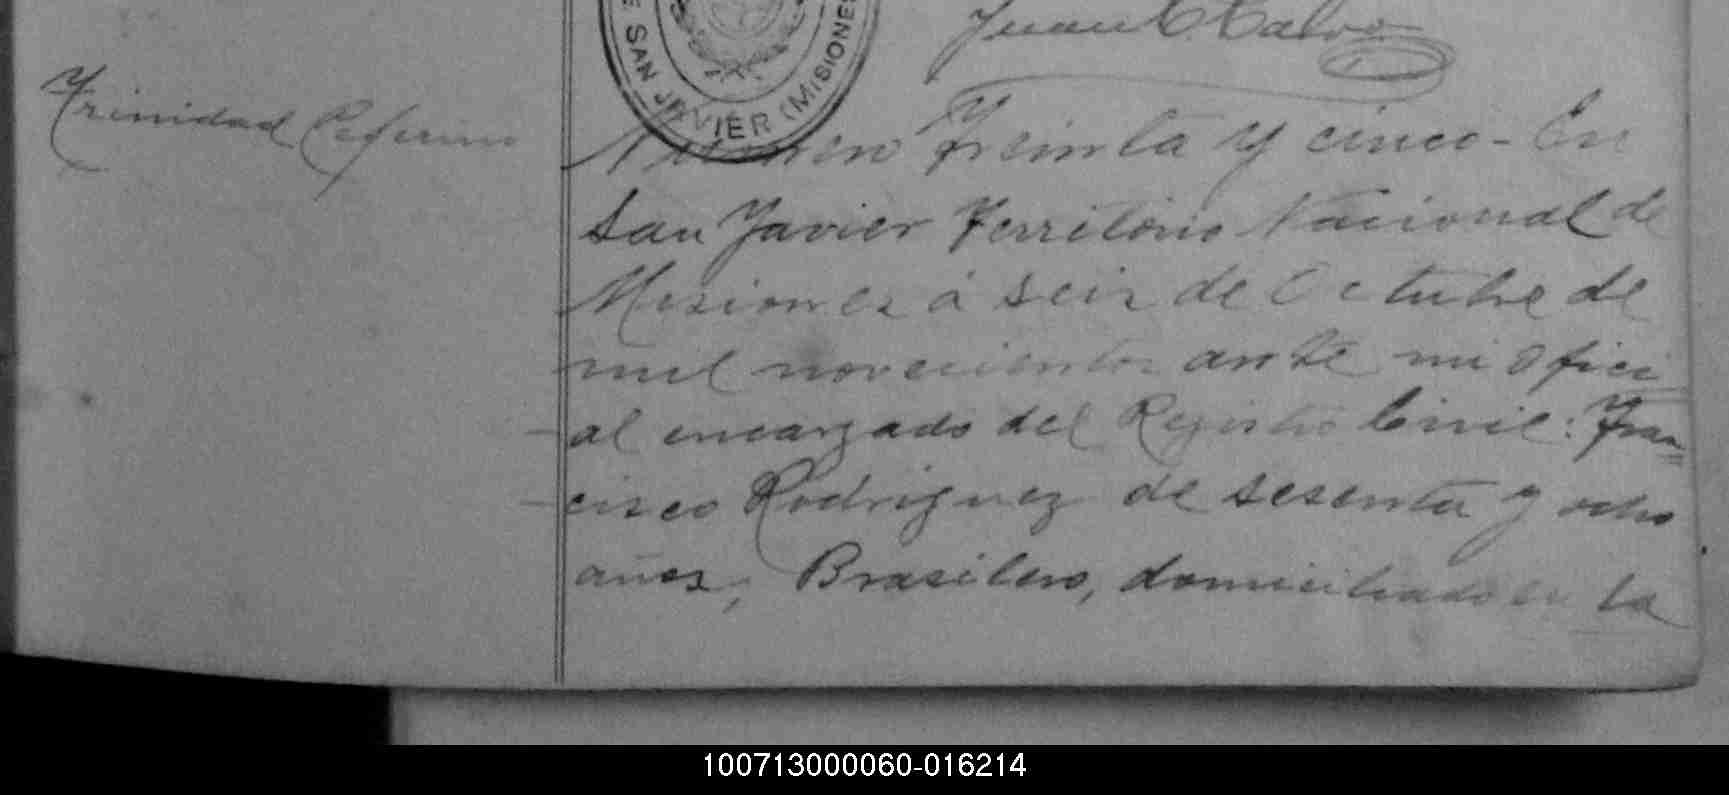 E SAN JAVIER (MISIONES
Juan C. Calvo
Trinidad Ceferino
Numero Treinta y cinco - En
San Javier Territorio Nacional de
Misiones á seis de Octubre de
mil novecientos ante mi ofici
al encargado del Registro Civil: Fran
cisco Rodriguez de sesenta y ocho
años, Brasilero, domiciliado en la
100713000060-016214